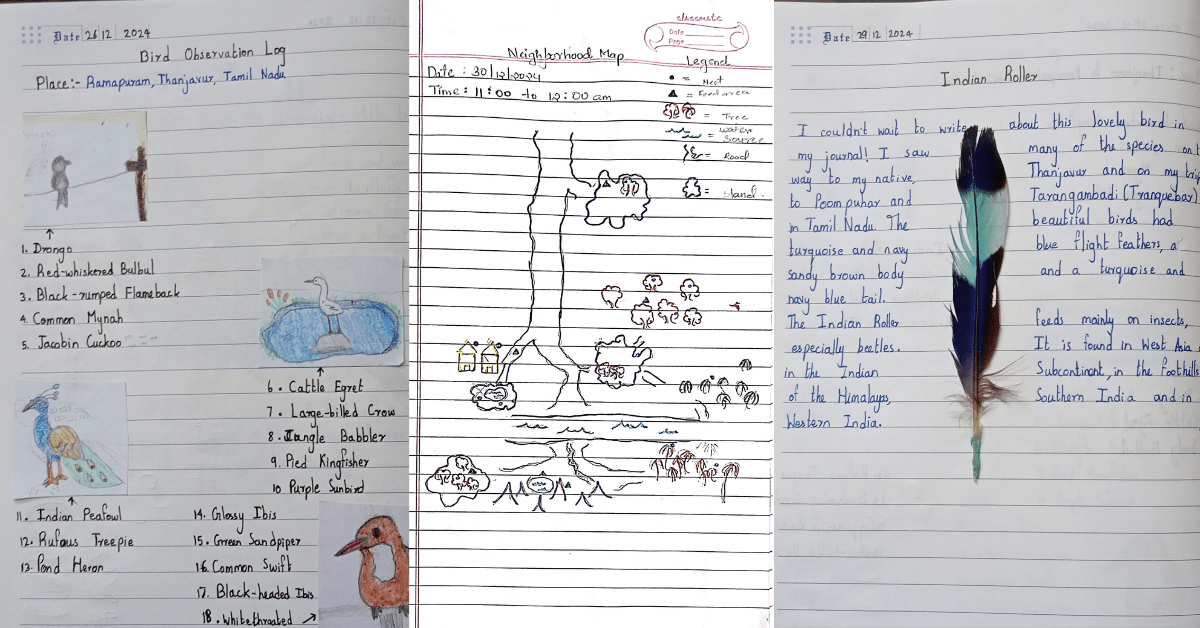 Date 26 12 2024
Bird Observation Log
Place:- Ramapuram, Thanjavur, Tamil Nadu
1. Drongo
2. Red-whiskered Bulbul
3. Black-rumped Flameback
4. Common Mynah
5. Jacobin Cuckoo
6. Cattle Egret
7. Large-billed Crow
8. Jungle Babbler
9. Pied Kingfisher
10 Purple Sunbird
11. Indian Peafowl
12. Rufous Treepie
13. Pond Heron
14. Glossy Ibis
15. Green Sandpiper
16. Common Swift
17. Black-headed Ibis
18. Whitethroated
classmate
Date
Page
Neighborhood Map
Date : 30/12/2024
Time : 11:00 to 12:00 am
Legend
= Nest
= Feed area
= Tree
= water source
= Road
= Land.
Date 29 12 2024
Indian Roller
I couldn't wait to write about this lovely bird in
my journal! I saw many of the species on t
way to my native, Thanjavur and on my trip
to Poompuhar and Tarangambadi (Tranquebar)
in Tamil Nadu. The beautiful birds had
turquoise and navy blue flight feathers, a
sandy brown body and a turquoise and
navy blue tail.
The Indian Roller feeds mainly on insects,
especially beetles. It is found in West Asia
in the Indian Subcontinent, in the foothills
of the Himalayas, Southern India and in
Western India.